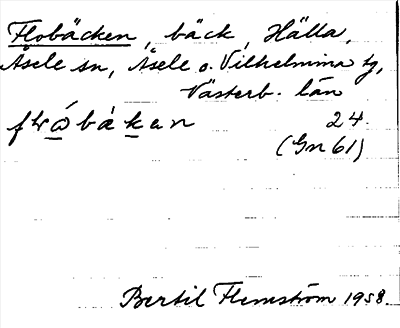 Flobäcken, bäck, Hälla,
Åsele sn, Åsele o. Vilhelmina tg,
Västerb. län
24.
(Gn 61)
Bertil Flemström 1958.